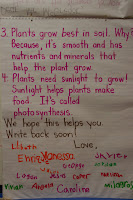 3. Plants grow best in soil. Why?
Because, it's smooth and has
nutrients and minerals that
help the plant grow.
4. Plants need sunlight to grow!
Sunlight helps plants make
food. It's called
photosynthesis.
We hope this helps you.
Write back soon!
Love,
Lizbeth
Vanessa
Skyler
Logan
Vivian
Angela
Caroline
milagros